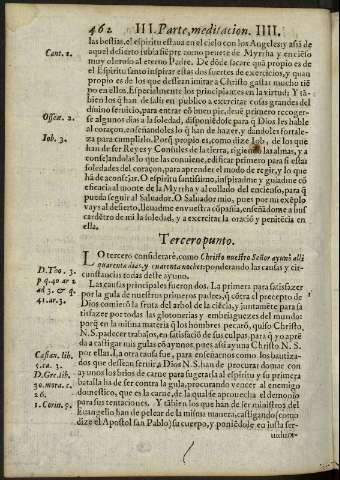 462 III. Parte, meditacion. IIII.
las bestias, el espiritu estaua en el cielo con los Angeles: y assi de
aquel desierto subia siẽpre como peuete de Myrrha y encieso
Cant. 3.
muy oloroso al eterno Padre. De dõde sacare quã propio es de
el Espiritu santo inspirar estas dos suertes de exercicios, y quan
propio es de los que dessean imitar a Christo gastar mucho tiẽ
po en ellos. Especialmente los principiantes en la virtud: Y tã-
bien los q̃ han de salir en publico a exercitar cosas grandes del
diuino seruicio, para entrar cõ buen pie, deuẽ primero recoger-
Osseæ. 2.
se algunos dias a la soledad, disponiẽdose para q̃ Dios les hable
al coraçon, enseñandoles lo q̃ han de hazer, y dandoles fortale-
Iob. 3.
za para cumplirlo. Porq̃ propio es, como dize Iob, de los que
han de ser Reyes y Consules de la tierra, rigiendo las almas, y a
consejandolas lo que las conuiene, edificar primero para si estas
soledades del coraçon, para aprender el modo de regir, y lo que
hã de aconsejar. O espiritu santissimo, inspiradme y guiadme cõ
eficacia al monte de la Myrrha y al collado del encienso, para q̃
pueda seguir al Saluador. O Saluador mio, pues por mi exẽplo
vays al desierto, lleuadme en vuestra cõpañia, enseñadome a bus
car dẽtro de mi la soledad, y a exercitar la oració y penitẽcia en
ella.
Tercero punto.
LO tercero considerarè, como Christo nuestro Señor ayunò alli
quarenta dias, y quarenta noches: ponderando las causas y cir-
D. Tho. 3.
cunstancias todas deste ayuno.
p q. 40. ar 2
Las causas principales fueron dos. La primera para satisfazer
ad 3. & q.
por la gula de nuestros primeros padres, q̃ cõtra el precepto de
41. ar. 3.
Dios comierõ la fruta del arbol de la ciẽcia, y juntamẽte para sa
tisfazer por todas las glotonerias y embriaguezes del mundo:
porq̃ en la misma materia q̃ los hombres pecarõ, quiso Christo
N.S. padecer trabajos, en satisfació de sus culpas, para q̃ yo aprẽ
da a castigar mis gulas cõ ayunos, pues assi ayuna Christo N. S.
Cassian. lib.
por ellas. La otra causa fue, para enseñarnos como los bautiza-
5. ca. 3.
dos que dessean seruir a Dios N.S. han de procurar domar con
D. Gre. lib.
ayunos los brios de carne para sugetarla al espiritu y su primera
30. mora. c.
batalla ha de ser contra la gula, procurando vencer al enemigo
26.
domestico, que es la carne, de la qual se aprouecha el demonio
para sus tentaciones. Y tãbien los que han de ser ministros del
1. Corin. 9.
Euangelio han de pelear de la misma manera, castigando (como
dize el Apostol san Pablo) su cuerpo, y poniẽdole en justa ser-
uidum-